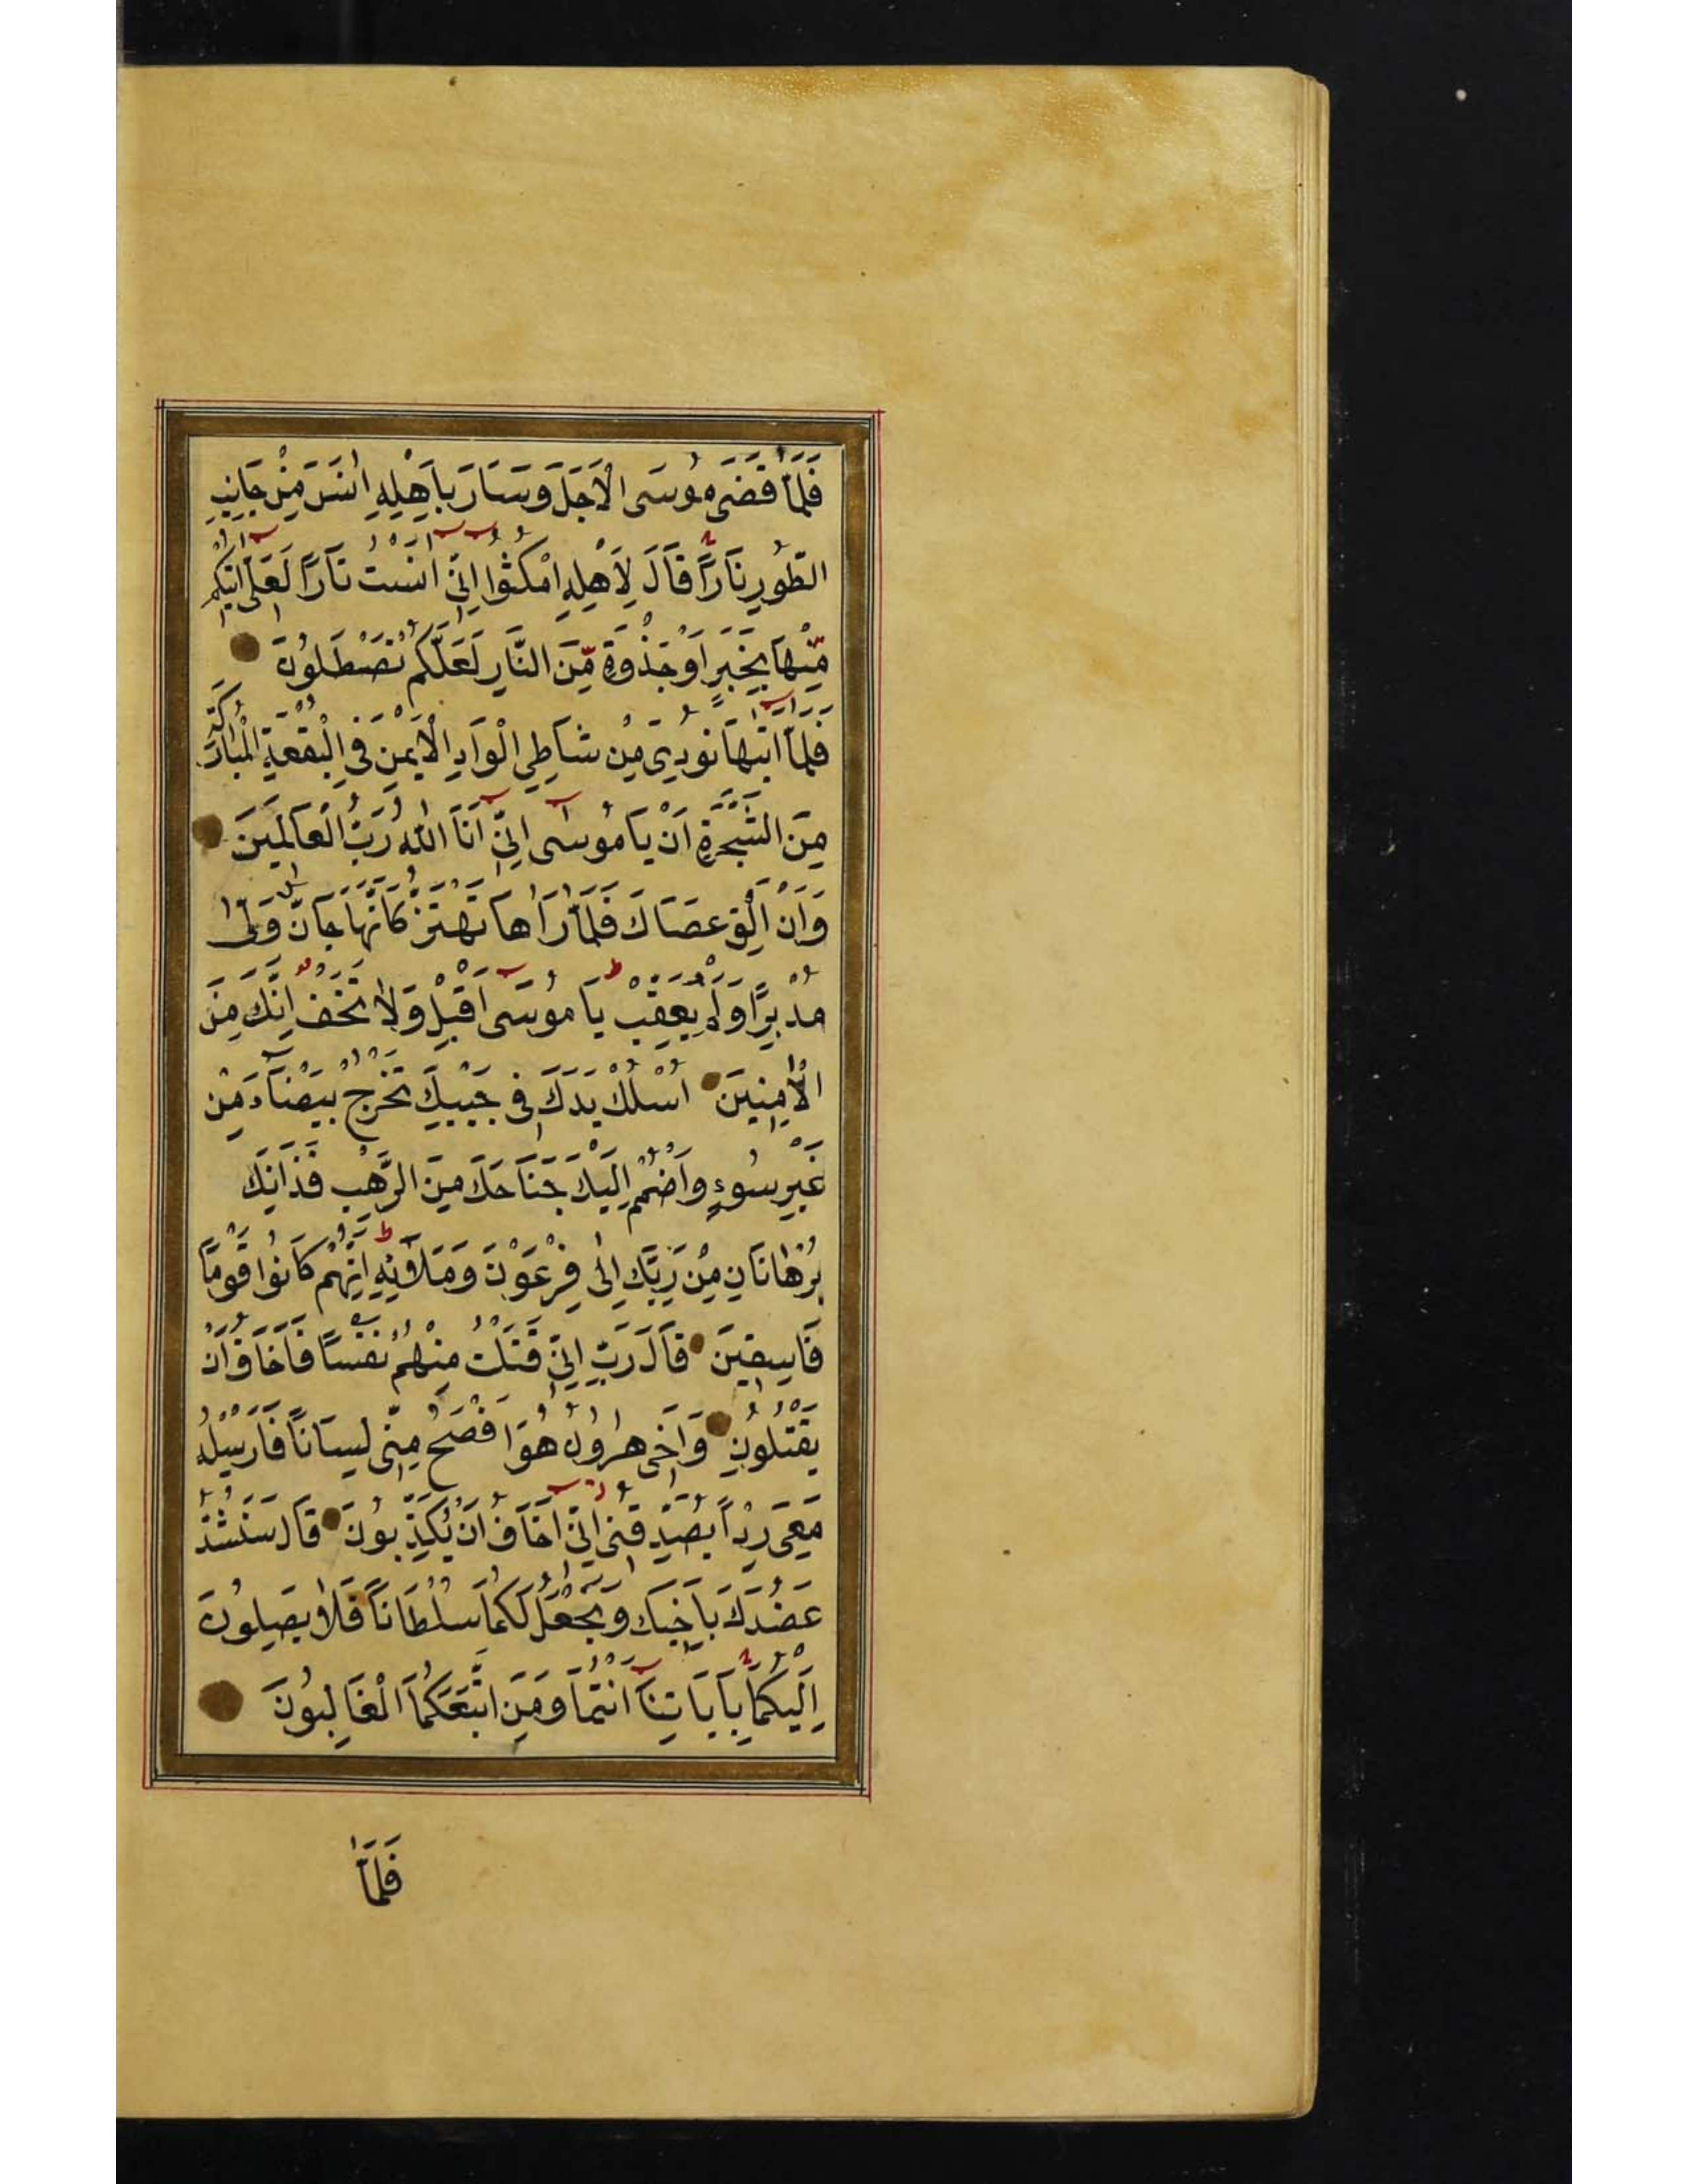 فَلَمَّا قَضَى مُوسَى الْاَجَلَ وَسَارَ بِاَهْلِهِ اٰنَسَ مِنْ جَانِبِ
الطُّورِ نَارًا قَالَ لِاَهْلِهِ امْكُثُوا اِنِّى اٰنَسْتُ نَارًا لَعَلِّى اٰتِيكُمْ
مِّنْهَا بِخَبَرٍ اَوْ جَذْوَةٍ مِّنَ النَّارِ لَعَلَّكُمْ تَصْطَلُونَ
فَلَمَّا اَتٰيهَا نُودِىَ مِنْ شَاطِئِ الْوَادِ الْاَيْمَنِ فِى الْبُقْعَةِ الْمُبَارَكَةِ
مِنَ الشَّجَرَةِ اَنْ يَا مُوسٰى اِنِّى اَنَا اللّٰهُ رَبُّ الْعَالَمِينَ
وَاَنْ اَلْقِ عَصَاكَ فَلَمَّا رَاٰهَا تَهْتَزُّ كَاَنَّهَا جَانٌّ وَلّٰى
مُدْبِرًا وَلَمْ يُعَقِّبْ يَا مُوسَى اَقْبِلْ وَلَا تَخَفْ اِنَّكَ مِنَ
الْاٰمِنِينَ اُسْلُكْ يَدَكَ فِى جَيْبِكَ تَخْرُجْ بَيْضَاءَ مِنْ
غَيْرِ سُوءٍ وَاضْمُمْ اِلَيْكَ جَنَاحَكَ مِنَ الرَّهْبِ فَذَانِكَ
بُرْهَانَانِ مِنْ رَبِّكَ اِلٰى فِرْعَوْنَ وَمَلَائِهِ اِنَّهُمْ كَانُوا قَوْمًا
فَاسِقِينَ قَالَ رَبِّ اِنِّى قَتَلْتُ مِنْهُمْ نَفْسًا فَاَخَافُ اَنْ
يَقْتُلُونِ وَاَخِى هٰرُونُ هُوَ اَفْصَحُ مِنِّى لِسَانًا فَاَرْسِلْهُ
مَعِىَ رِدْاً يُصَدِّقُنِى اِنِّى اَخَافُ اَنْ يُكَذِّبُونَ قَالَ سَنَشُدُّ
عَضُدَكَ بِاَخِيكَ وَنَجْعَلُ لَكُمَا سُلْطَانًا فَلَا يَصِلُونَ
اِلَيْكُمَا بِاٰيَاتِنَا اَنْتُمَا وَمَنِ اتَّبَعَكُمَا الْغَالِبُونَ
فَلَمَّا